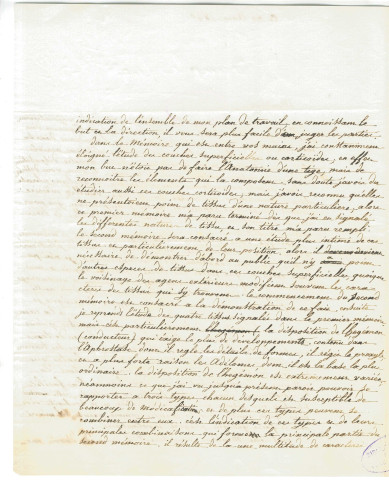 indication de l'ensemble de mon plan de travail, en connoissant le
but et la direction, il vous sera plus facile d'en juger les parties.
dans le Mémoire qui est entre vos mains, j'ai constamment
éloigné l'étude des couches superficielles ou corticales, en effet
mon but n'étoit pas de faire l'Anatomie d'une tige, mais de
reconnoitre les éléments qui la composent, sans doute j'aurois dû
étudier aussi ces couches corticales, mais j'avois reconnu qu'elles
ne présentoient point de tissu d'une nature particulière, alors
ce premier mémoire m'a paru terminé dès que j'ai eu signalé
les différentes natures de tissu, et son titre m'a paru rempli
le second mémoire sera consacré à une étude plus intime de ces
tissus et particulièrement de leur position, alors il
nécessaire de démontrer d'abord au public qu'il n'y a point
d'autres espèces de tissu dans les couches superficielles quoique
le voisinage des agens extérieurs modifient souvent les cara
ctères du tissu qui s'y trouvent. le commencement du second
mémoire est consacré à la démonstration de ce fait, ensuite
je reprends l'étude des quatre tissus signalés dans le premier mémoire
mais c'est particulièrement la disposition de
(conducteur) qui exige le plus de développements, contenu dans
dont il règle les détails de formes, il règle la
et à plus forte raison les dont il est la base la plus
ordinaire. la disposition de est extrêmement variée
néanmoins ce que j'ai vu jusqu'à présent paroit pouvoir se
rapporter à trois types, chacun desquels est susceptible de
beaucoup de modifications, et de plus ces types peuvent se
combiner entre eux, c'est l'indication de ces types et de leurs
principales combinaisons qui formera la principale partie du
second mémoire, il résulte de là une multitude de caractères